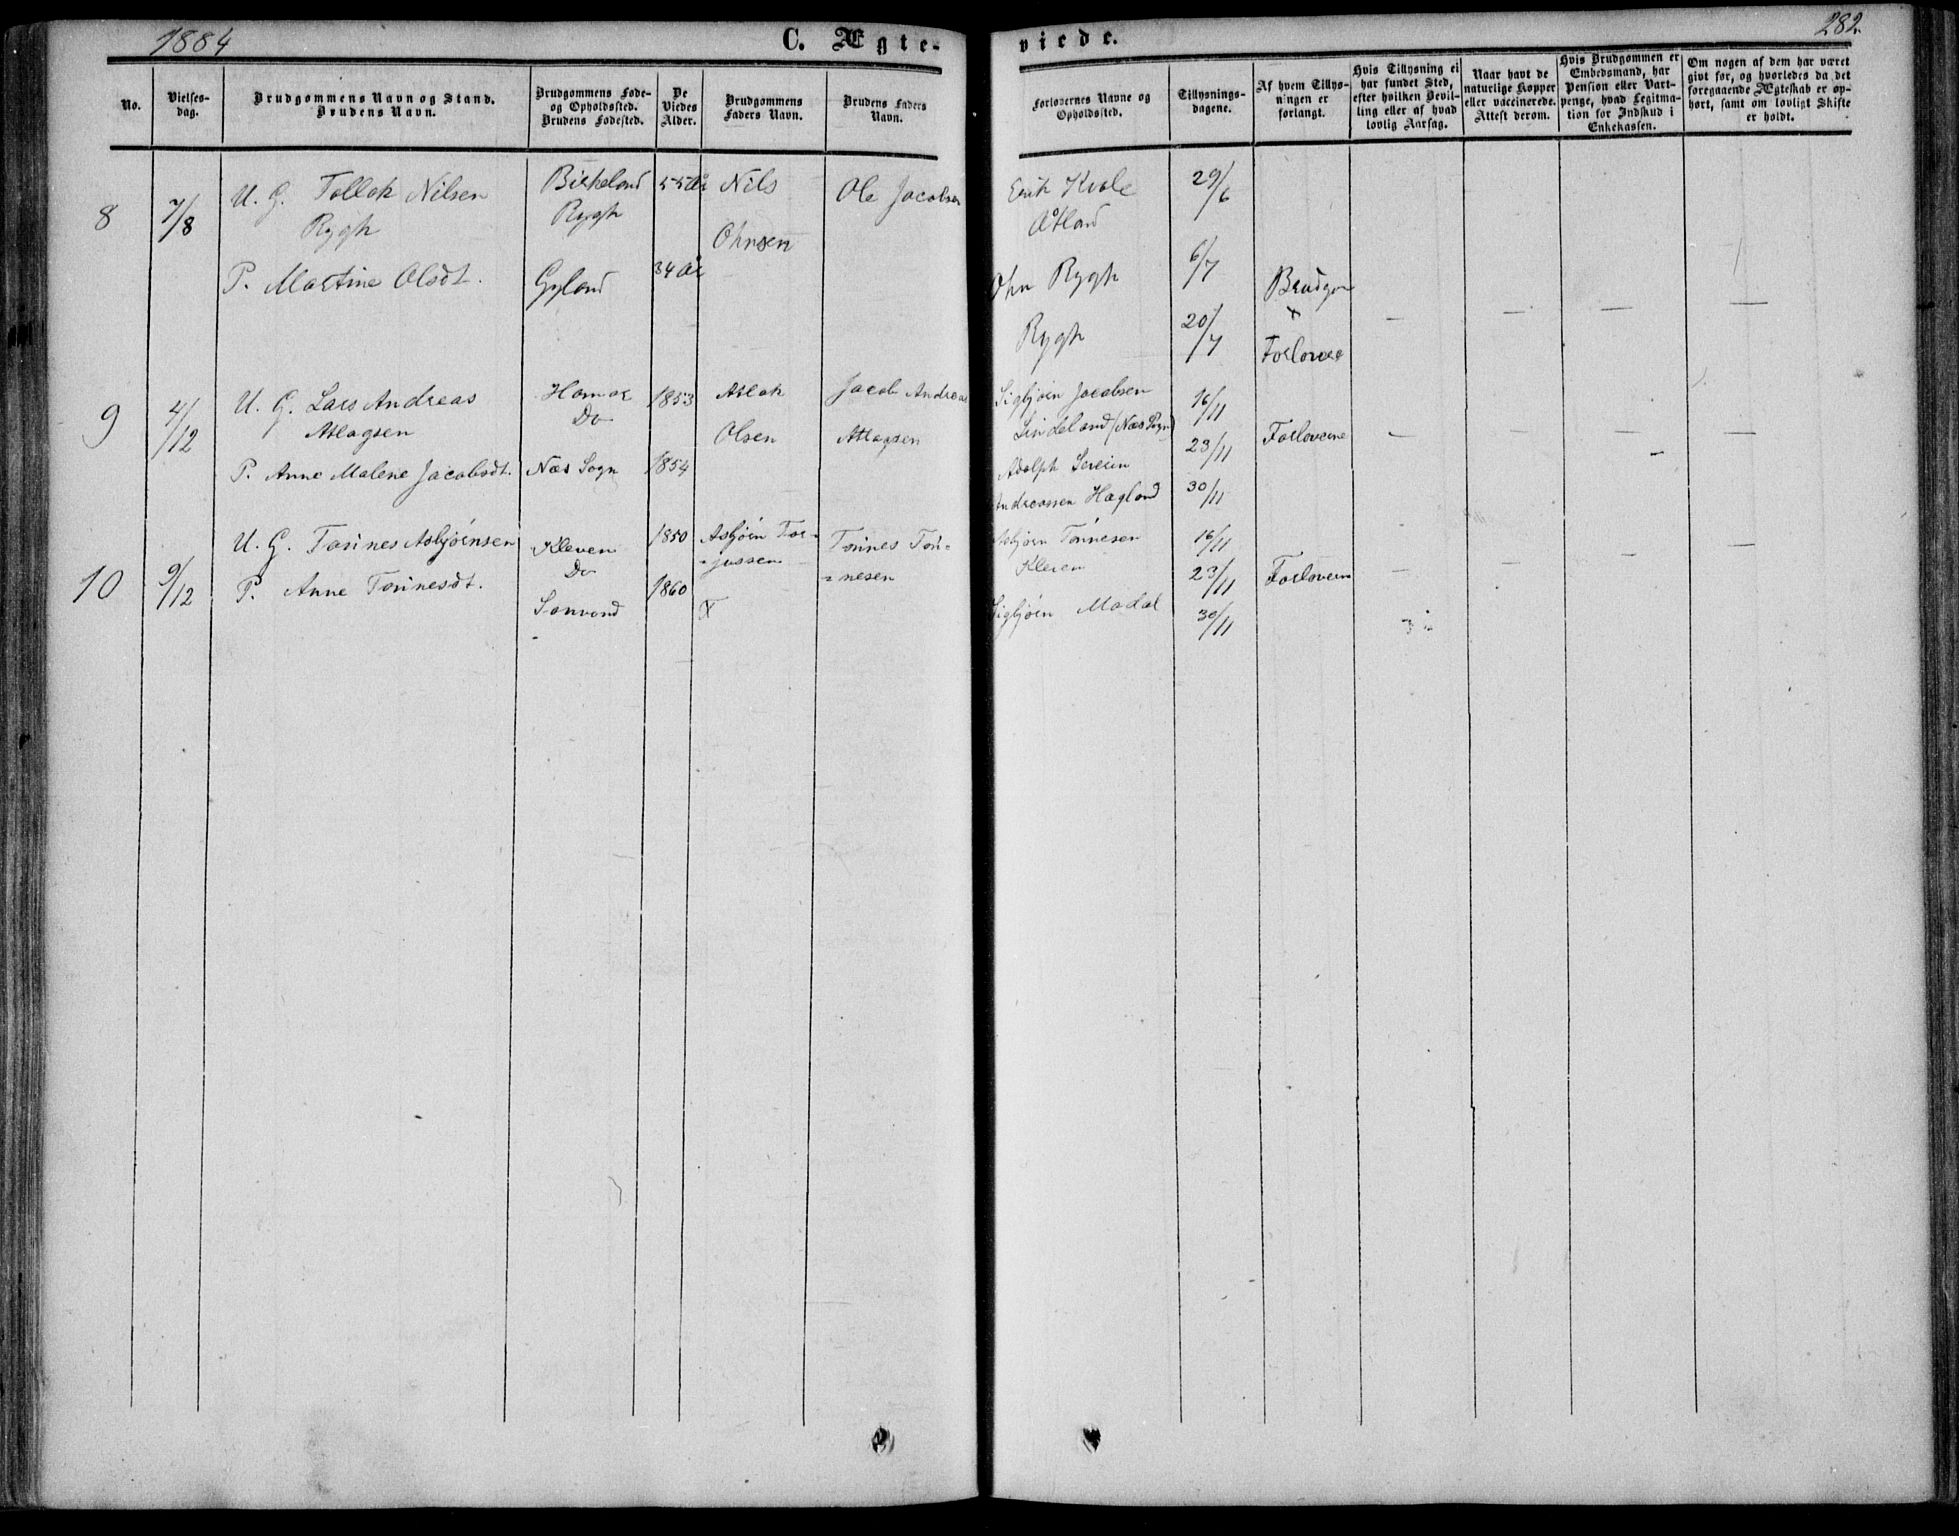 1884
C. Ægte-
viede.
282.
No.
Vielses-
dag.
Brudgommens Navn og Stand.
Brudens Navn.
Brudgommens Føde-
og Opholdssted.
Brudens Fødested.
De
Viedes
Alder.
Brudgommens
Faders Navn.
Brudens Faders
Navn.
Forlovernes Navne og
Opholdssted.
Tillysnings-
dagene.
Af hvem Tillys-
ningen er
forlangt.
Hvis Tillysning ei
har fundet Sted,
efter hvilken Bevil-
ling eller af hvad
lovlig Aarsag.
Naar havt de
naturlige Kopper
eller vaccinerede.
Attest derom.
Hvis Brudgommen er
Embedsmand, har
Pension eller Vart-
penge, hvad Legitma-
tion for Indskud i
Enkekassen.
Om nogen af dem har været
givt før, og hvorledes da det
foregaaende Ægteskab er op-
hørt, samt om lovligt Skifte
er holdt.
8
7/8
U. G. Tollak Nilsen
Rygh
P. Martine Olsdt.
Birkeland
Rygh
Gyland
55 År
34 År
Nils
Ohnsen
Ole Jacobsen
Erik Kvole
Åtland
Ohn Rygh
Rygh
29/6
6/7
20/7
Brudgom
+
Forlovere
— — — —
9
4/12
U. G. Lars Andreas
Atlagsen
P. Anne Malene Jacobsdt.
Hamar
Do
Næs Sogn
1853
1854
Atlak
Olsen
Jacob Andreas
Atlagsen
Sigbjørn Jacobsen
Lindeland (Næs Sogn)
Adolph Severin
Andreassen Hægland
16/11
23/11
30/11
Forloverne
— — — —
10
9/12
U. G. Tønnes Asbjørnsen
P. Anne Tønnesdt.
Kleven
Do
Sanvand
1850
1860
Asbjørn Tor-
-jussen
X
Tønnes Tøn-
-nesen
Asbjørn Tønnesen
Kleven
Sigbjørn Modal
16/11
23/11
30/11
Forlovern
— — — —